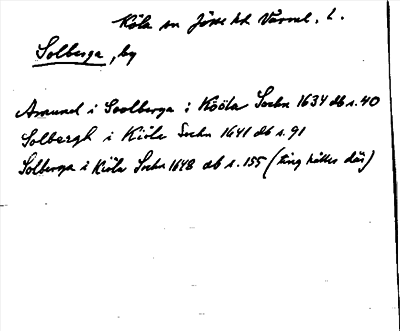 Köla sn Jösse hd Värml. l.
Solberga, by
Amund i Soolberga i Kööla Sochn 1634 db s. 40
Solbergh i Kiöla Sochn 1641 db s. 91
Solberga i Kiöla Sochn 1648 db s. 155 (ting hålles där)